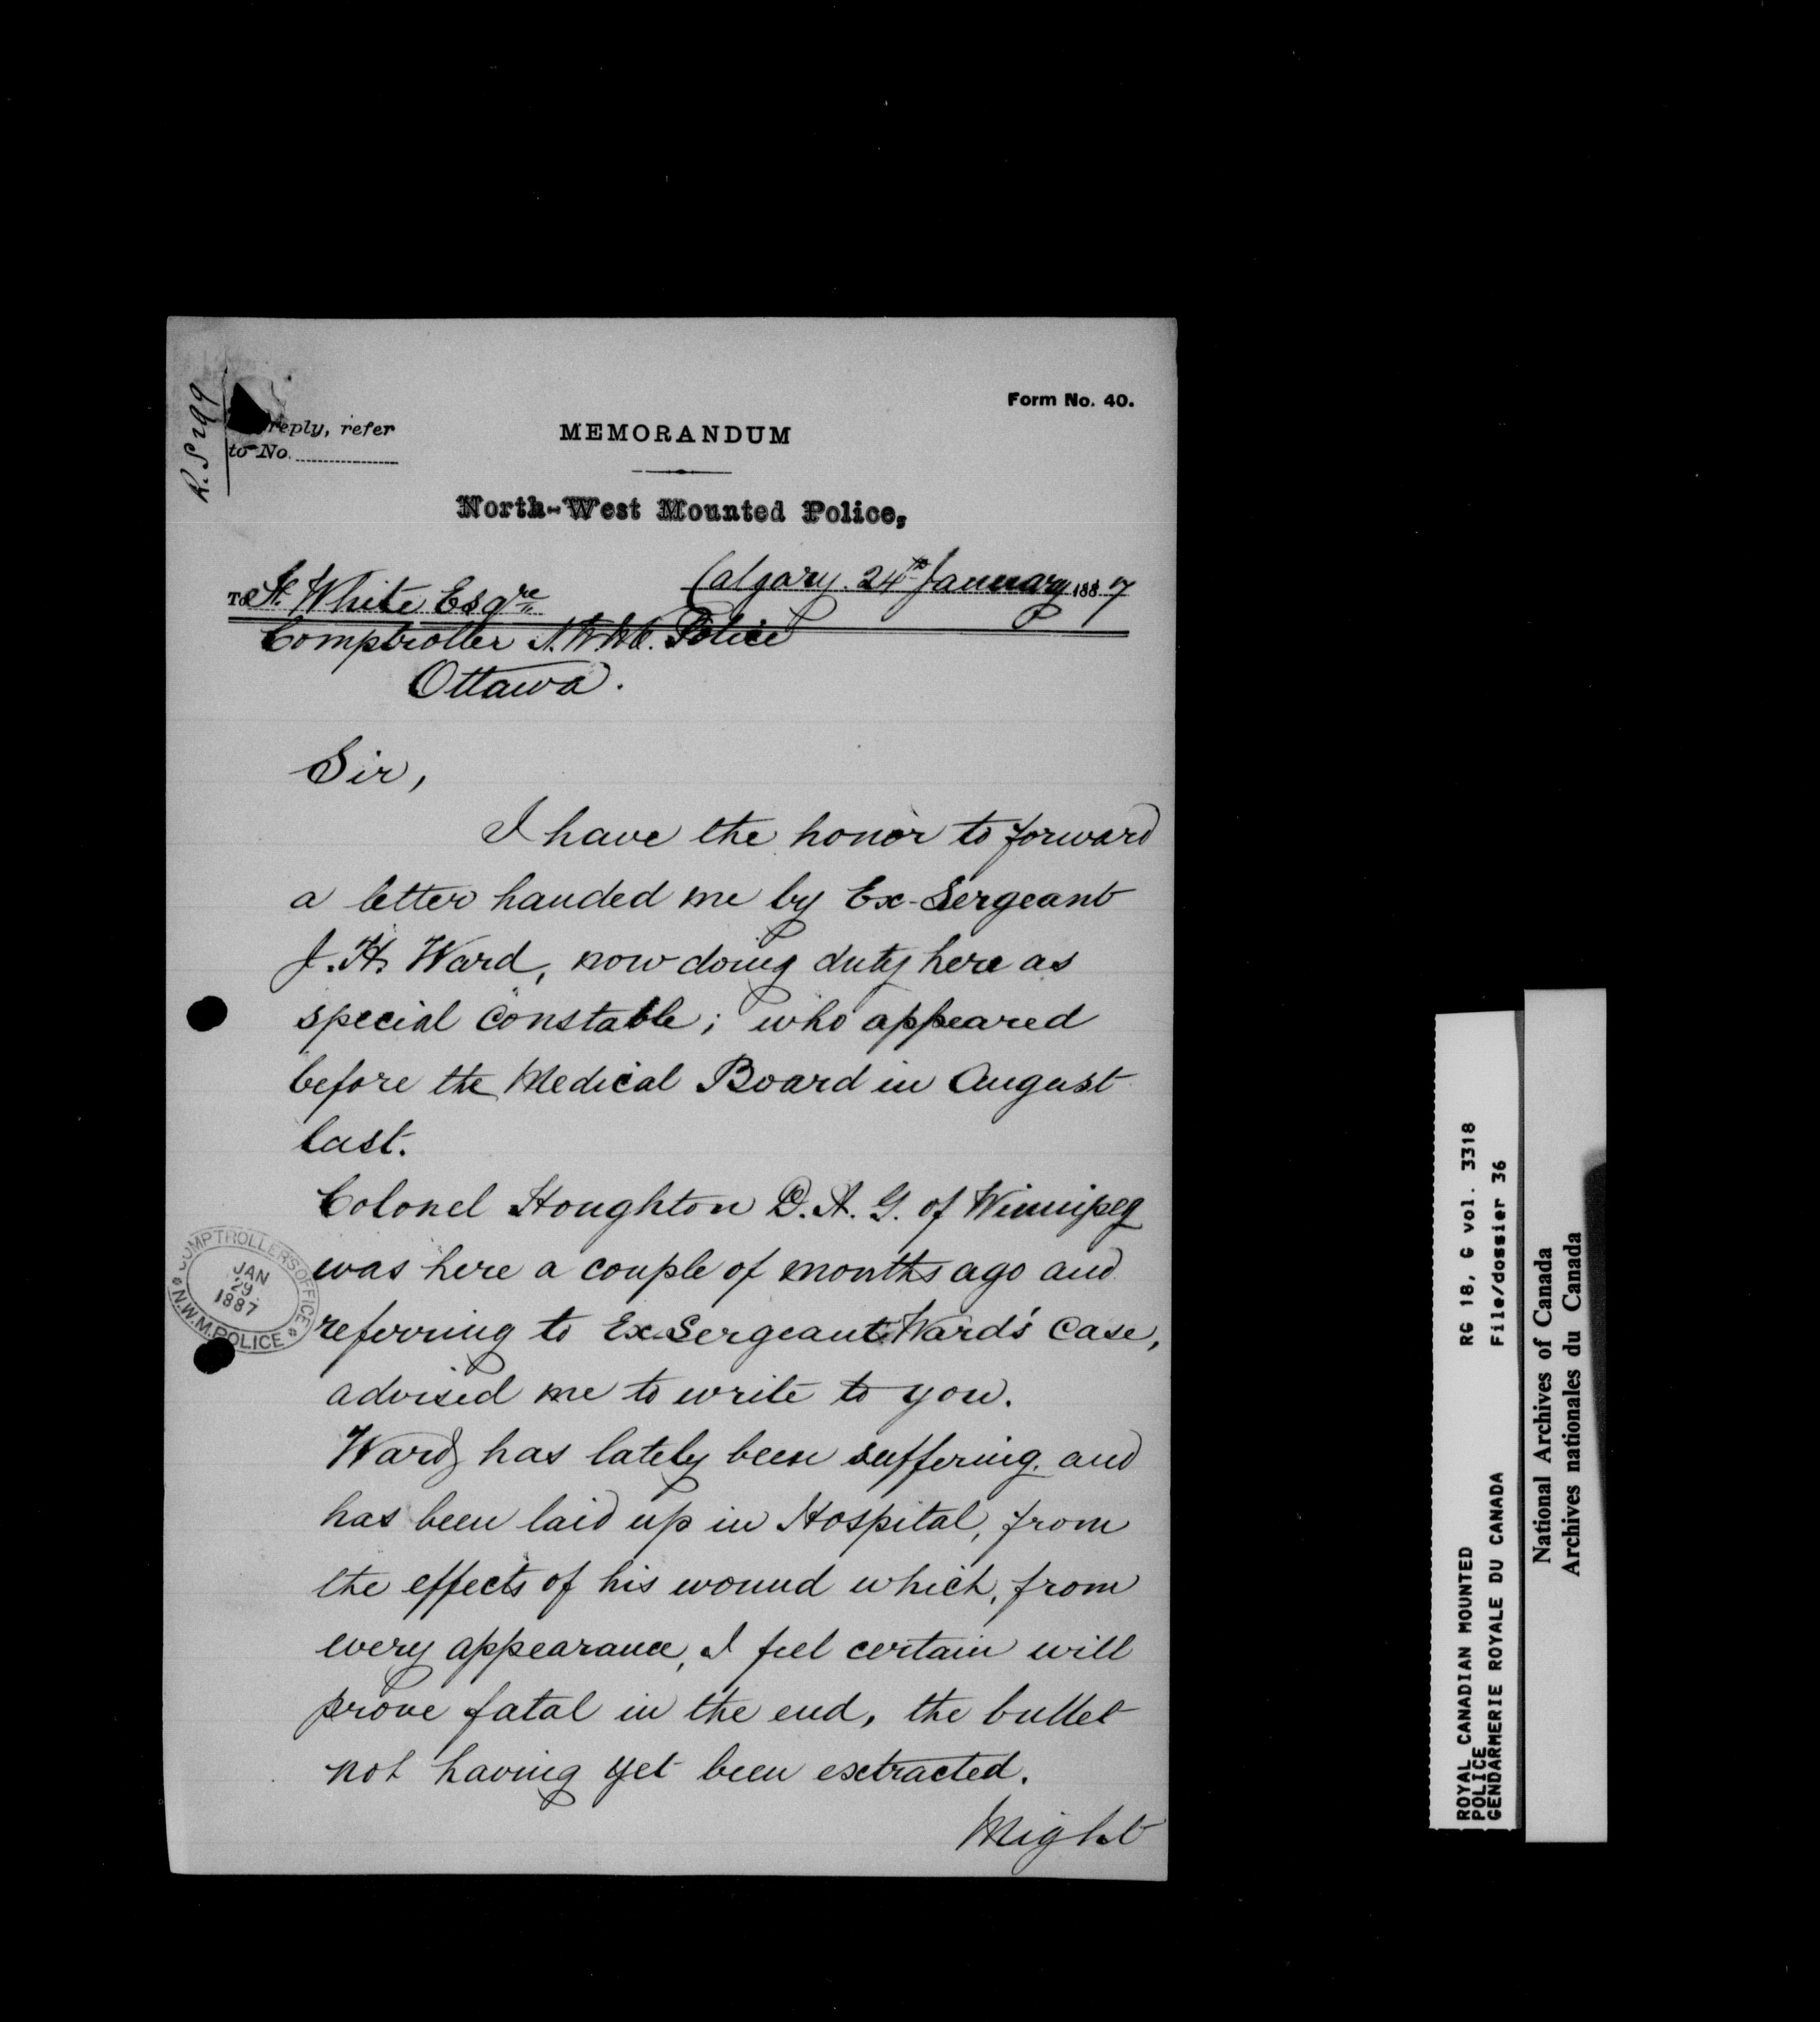 R.S 299
reply, refer
to No.
Form No. 40.
MEMORANDUM
North-West Mounted Police,
Calgary. 24th January 1887
To F. White Esqre
Comptroller N.W.M. Police
Ottawa.
Sir,
I have the honor to forward
a letter handed me by Ex-Sergeant
J.H. Ward, now doing duty here as
special constable; who appeared
before the Medical Board in August
last.
Colonel Houghton D.A.G. of Winnipeg
was here a couple of months ago and
referring to Ex-Sergeant Ward's case,
advised me to write to you.
Ward has lately been suffering and
has been laid up in Hospital, from
the effects of his wound which, from
every appearance, I feel certain will
prove fatal in the end, the bullet
not having yet been extracted.
Might
COMPTROLLER'S OFFICE
JAN
29
1887
N.W.M. POLICE
ROYAL CANADIAN MOUNTED
POLICE
GENDARMERIE ROYALE DU CANADA
RG 18, G vol. 3318
File/dossier 36
National Archives of Canada
Archives nationales du Canada